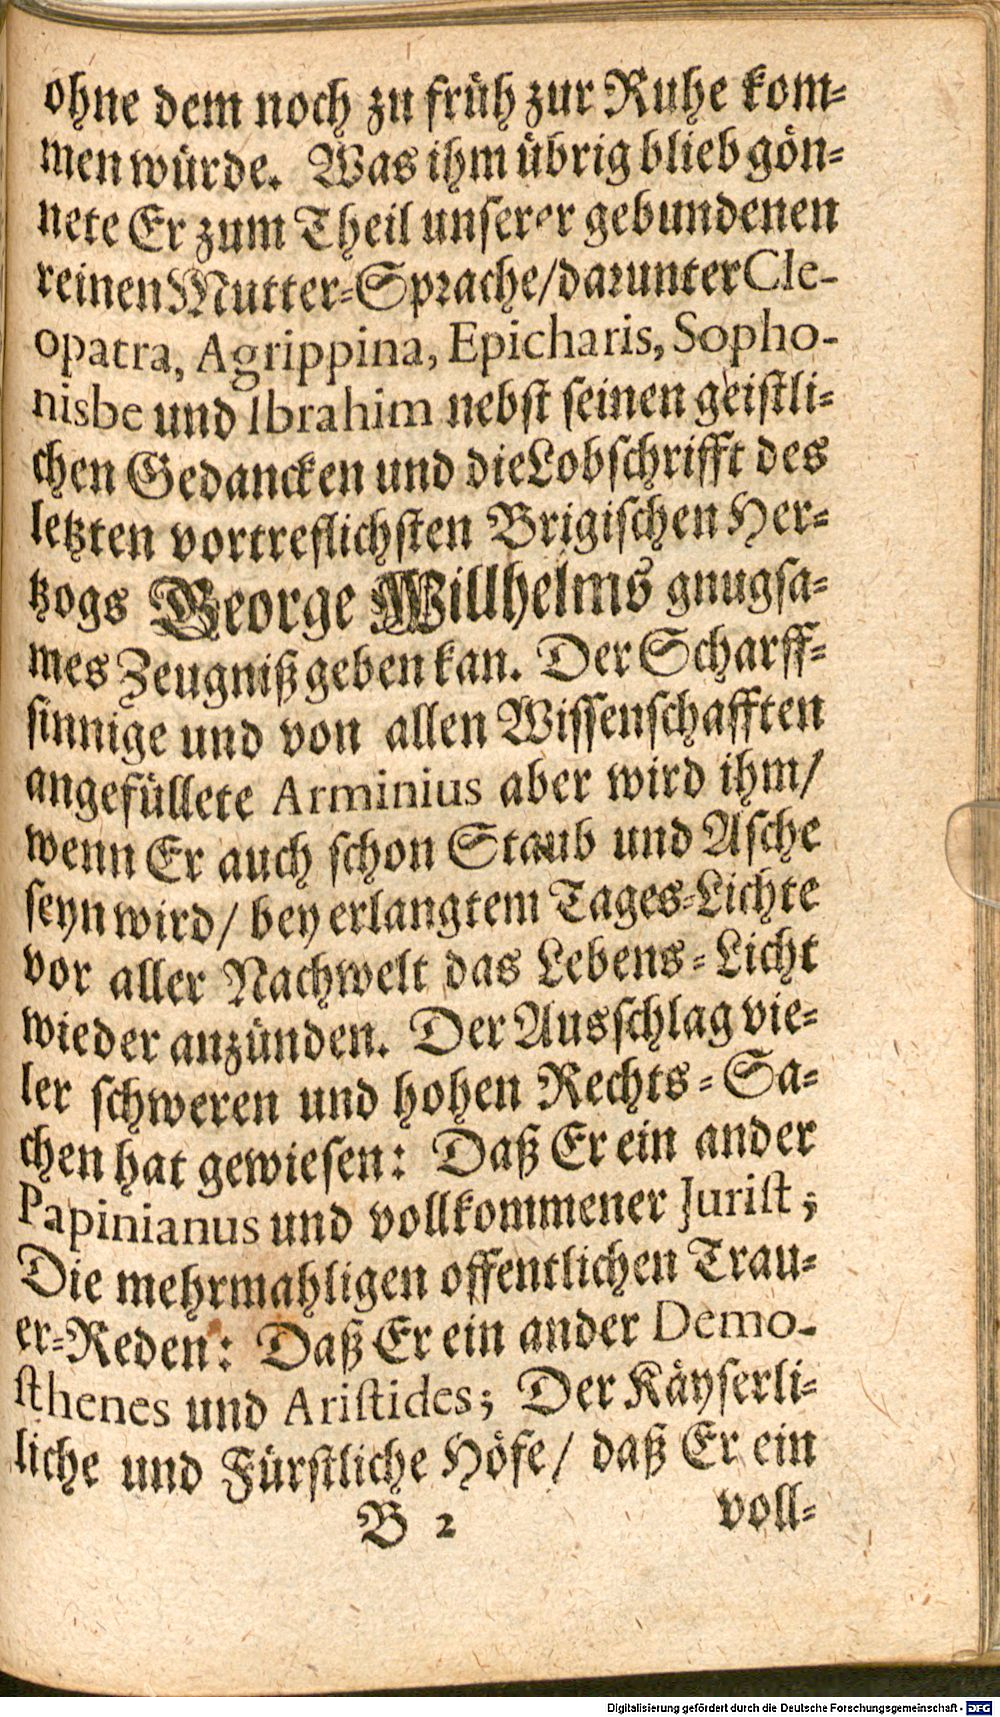 ohne dem noch zu früh zur Ruhe kom-
men würde. Was ihm übrig blieb gön-
nete Er zum Theil unserer gebundenen
reinen Mutter-Sprache/darunter Cle-
opatra, Agrippina, Epicharis, Sopho-
nisbe und Ibrahim nebst seinen geistli-
chen Gedancken und die Lobschrifft des
letzten vortreflichsten Brigischen Her-
tzogs George Willhelms gnugsa-
mes Zeugniß geben kan. Der Scharff-
sinnige und von allen Wissenschafften
angefüllete Arminius aber wird ihm/
wenn Er auch schon Staub und Asche
seyn wird/ bey erlangtem Tages-Lichte
vor aller Nachwelt das Lebens-Licht
wieder anzünden. Der Ausschlag vie-
ler schweren und hohen Rechts-Sa-
chen hat gewiesen: Daß Er ein ander
Papinianus und vollkommener Jurist;
Die mehrmahligen offentlichen Trau-
er-Reden: Daß Er ein ander Demo-
sthenes und Aristides; Der Käyserli-
liche und Fürstliche Höfe/ daß Er ein
B 2 voll-
Digitalisierung gefördert durch die Deutsche Forschungsgemeinschaft - DFG